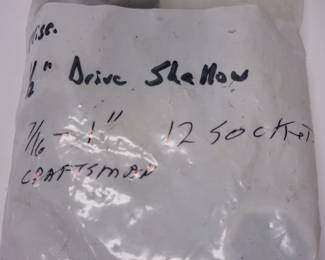 Misc.
1/2" Drive Shallow
7/16 - 1" 12 Socket
CRAFTSMAN